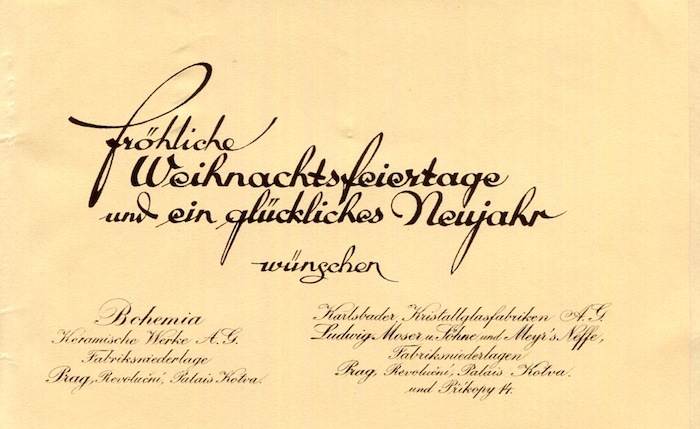 fröhliche
Weihnachtsfeiertage
und ein glückliches Neujahr
wünschen
Bohemia
Keramische Werke A.G.
Fabriksniederlage
Prag, Revoluční, Palais Kotva.
Karlsbader Kristallglasfabriken A.G.
Ludwig Moser u. Söhne und Meyr's Neffe,
Fabriksniederlagen
Prag, Revoluční, Palais Kotva.
und Příkopy 14.